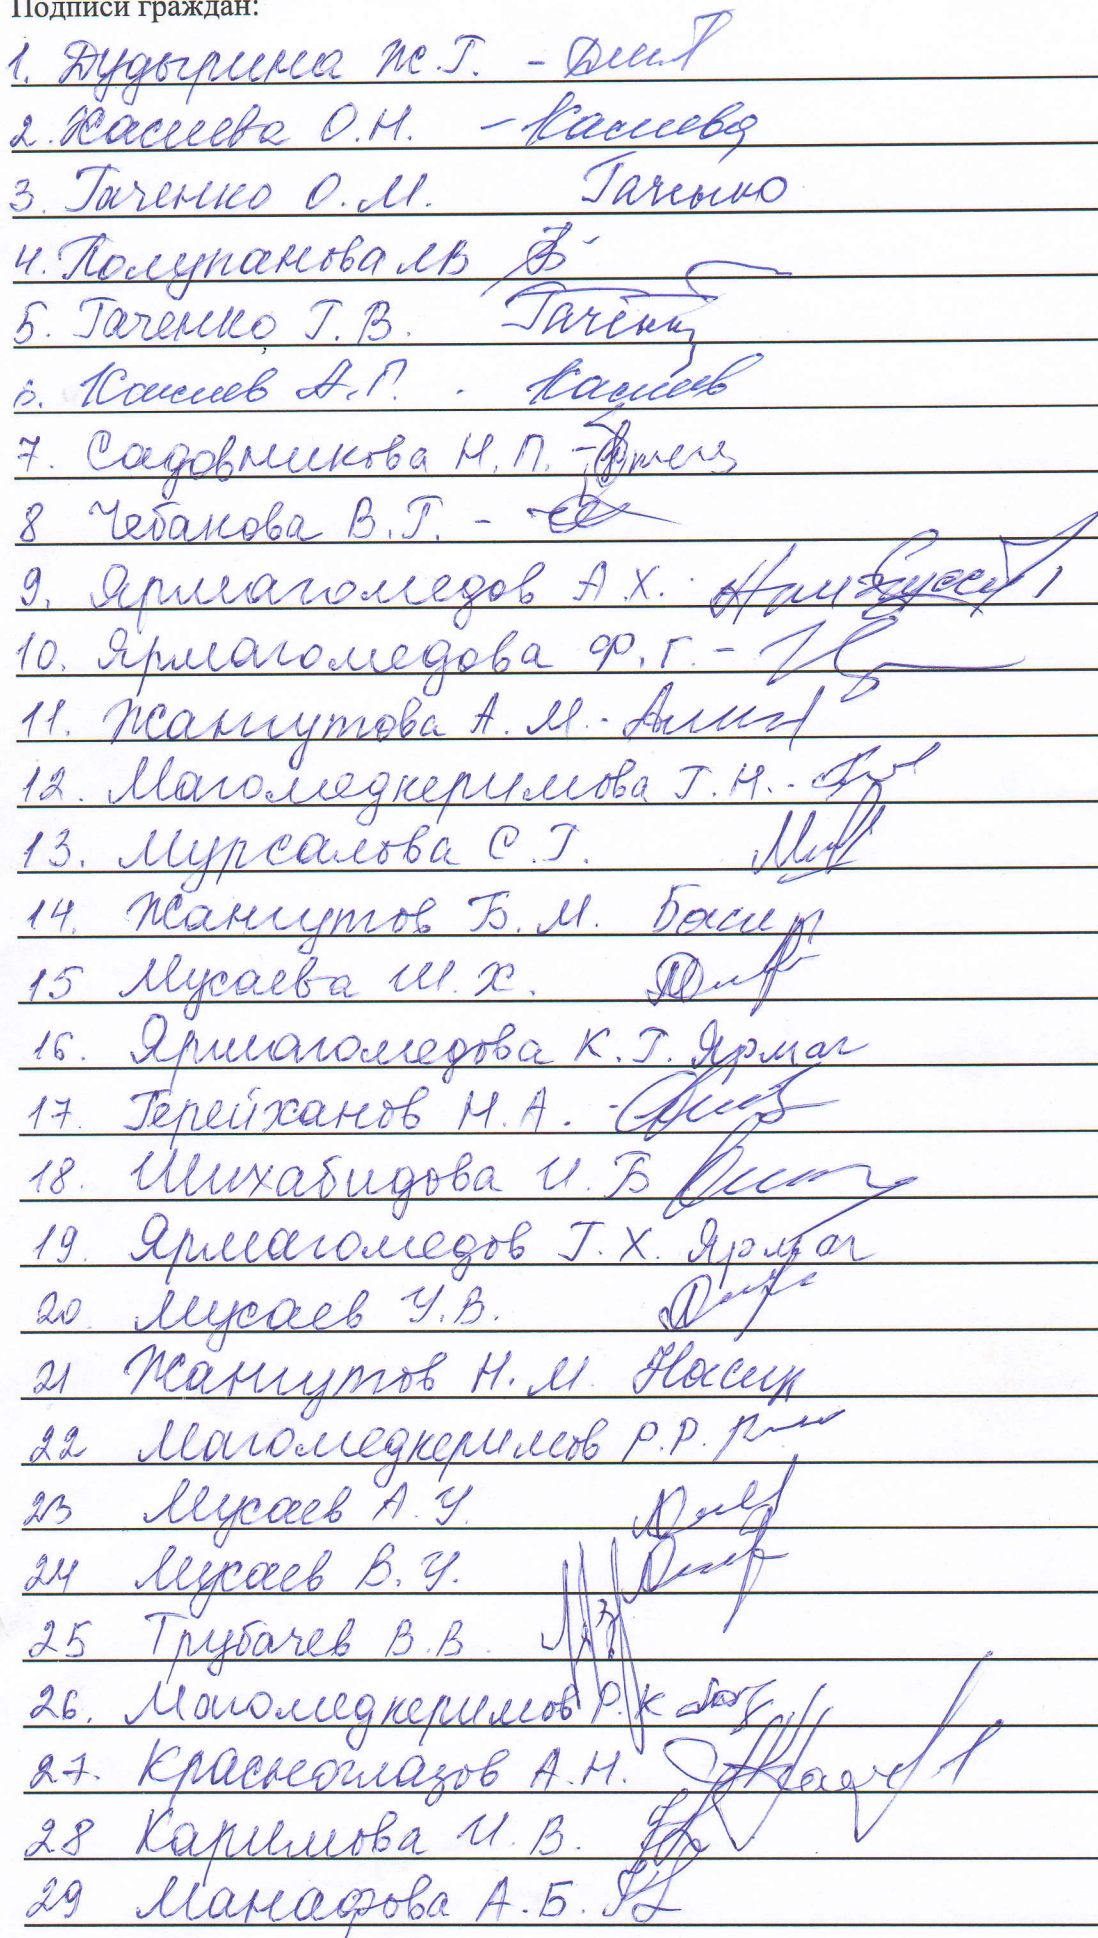 Подписи граждан:
1. Дудырина Ж.Г. -
2. Хасиева О.Н. - Касиева
3. Гаченко О.М. Гаченко
4. Полупанова ЛВ
5. Гаченко Г.В. Гаченко
6. Касиев А.Г. Касиев
7. Садовникова Н.П. -
8 Чебанова В.Г. -
9. Ярмагомедов А.Х.
10. Ярмагомедова Ф.Г. -
11. Жангутова А.М. -
12. Магомедкеримова Г.Н. -
13. Мурсалова С.Г.
14. Жангутов Б.М. Басир
15 Мусаева Ш.Х.
16. Ярмагомедова К.Г. Ярмаг
17. Герейханов Н.А. -
18. Шихабидова И.Б
19. Ярмагомедов Г.Х. Ярмаг
20 Мусаев У.В.
21 Жангутов Н.М. Насир
22 Магомедкеримов Р.Р.
23 Мусаев А.У.
24 Мусаев В.У.
25 Трубачев В.В.
26. Магомедкеримов Р.К
27. Красноглазов А.Н.
28 Каримова И.В.
29 Манафова А.Б.